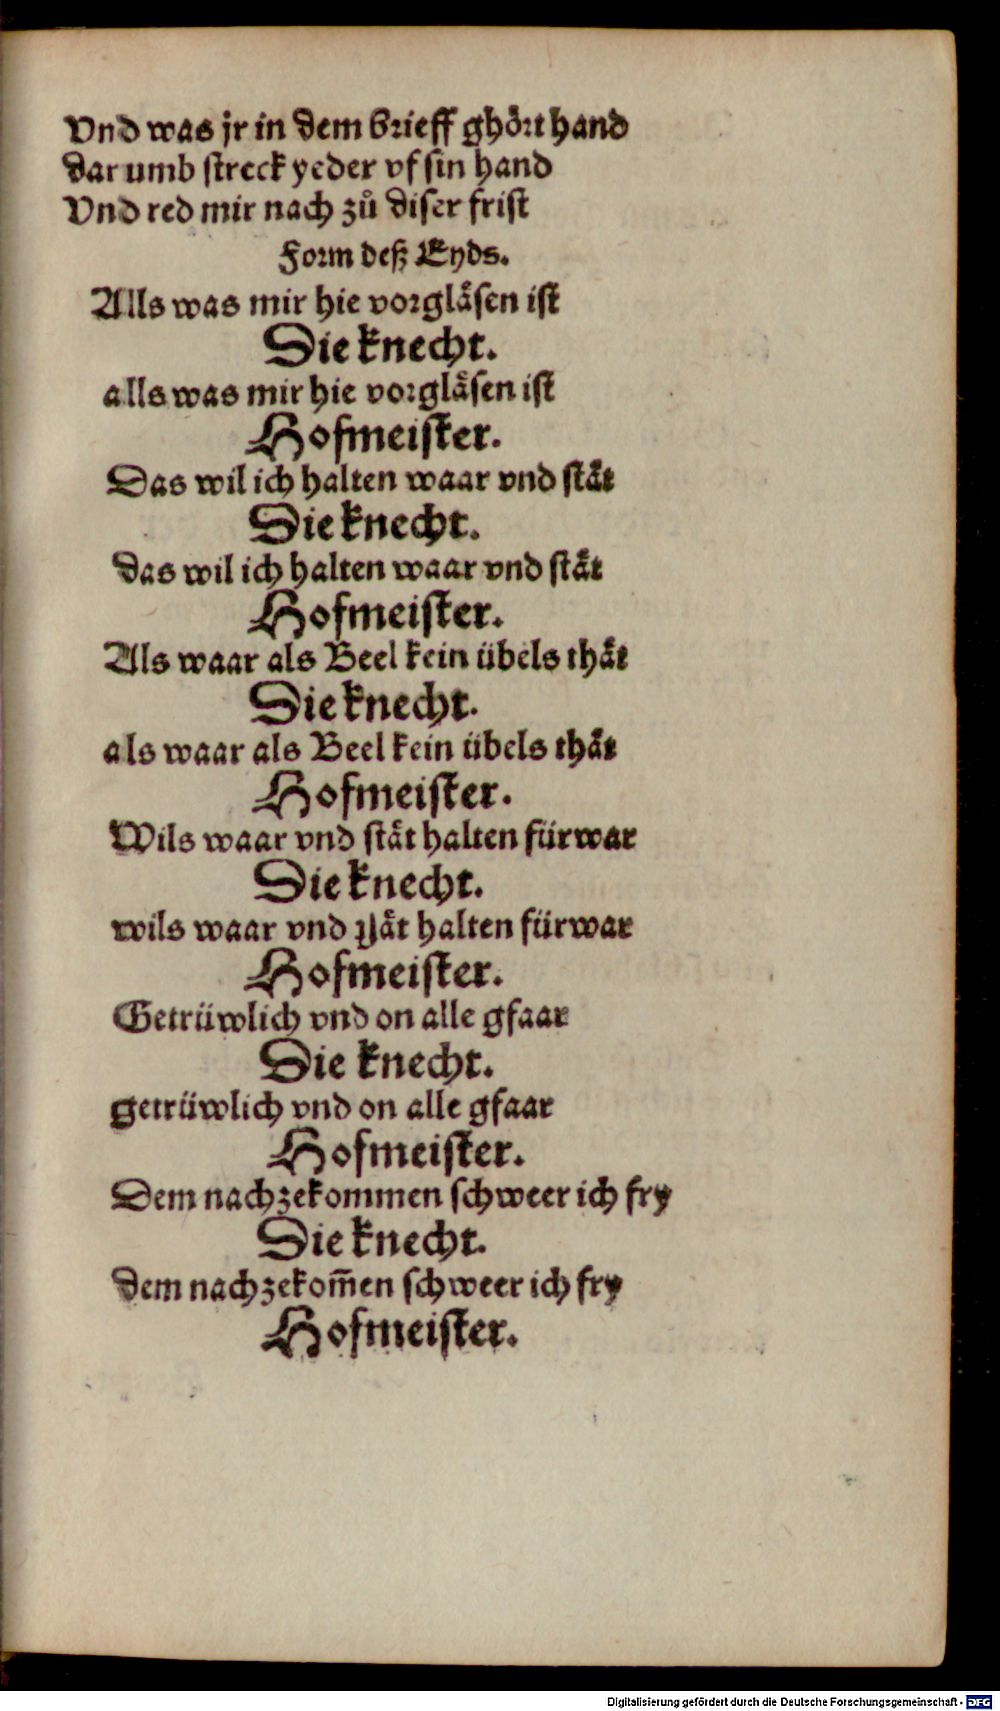 Vnd was jr in dem brieff ghört hand
dar umb streck yeder vf sin hand
Vnd red mir nach zů diser frist
Form deß Eyds.
Alls was mir hie vorgläsen ist
Die knecht.
alls was mir hie vorgläsen ist
Hofmeister.
Das wil ich halten waar vnd stät
Die knecht.
das wil ich halten waar vnd stät
Hofmeister.
Als waar als Beel kein übels thät
Die knecht.
als waar als Beel kein übels thät
Hofmeister.
Wils waar vnd stät halten fürwar
Die knecht.
wils waar vnd stät halten fürwar
Hofmeister.
Getrüwlich vnd on alle gfaar
Die knecht.
getrüwlich vnd on alle gfaar
Hofmeister.
Dem nachzekommen schweer ich fry
Die knecht.
dem nachzekom̄en schweer ich fry
Hofmeister.
Digitalisierung gefördert durch die Deutsche Forschungsgemeinschaft - DFG